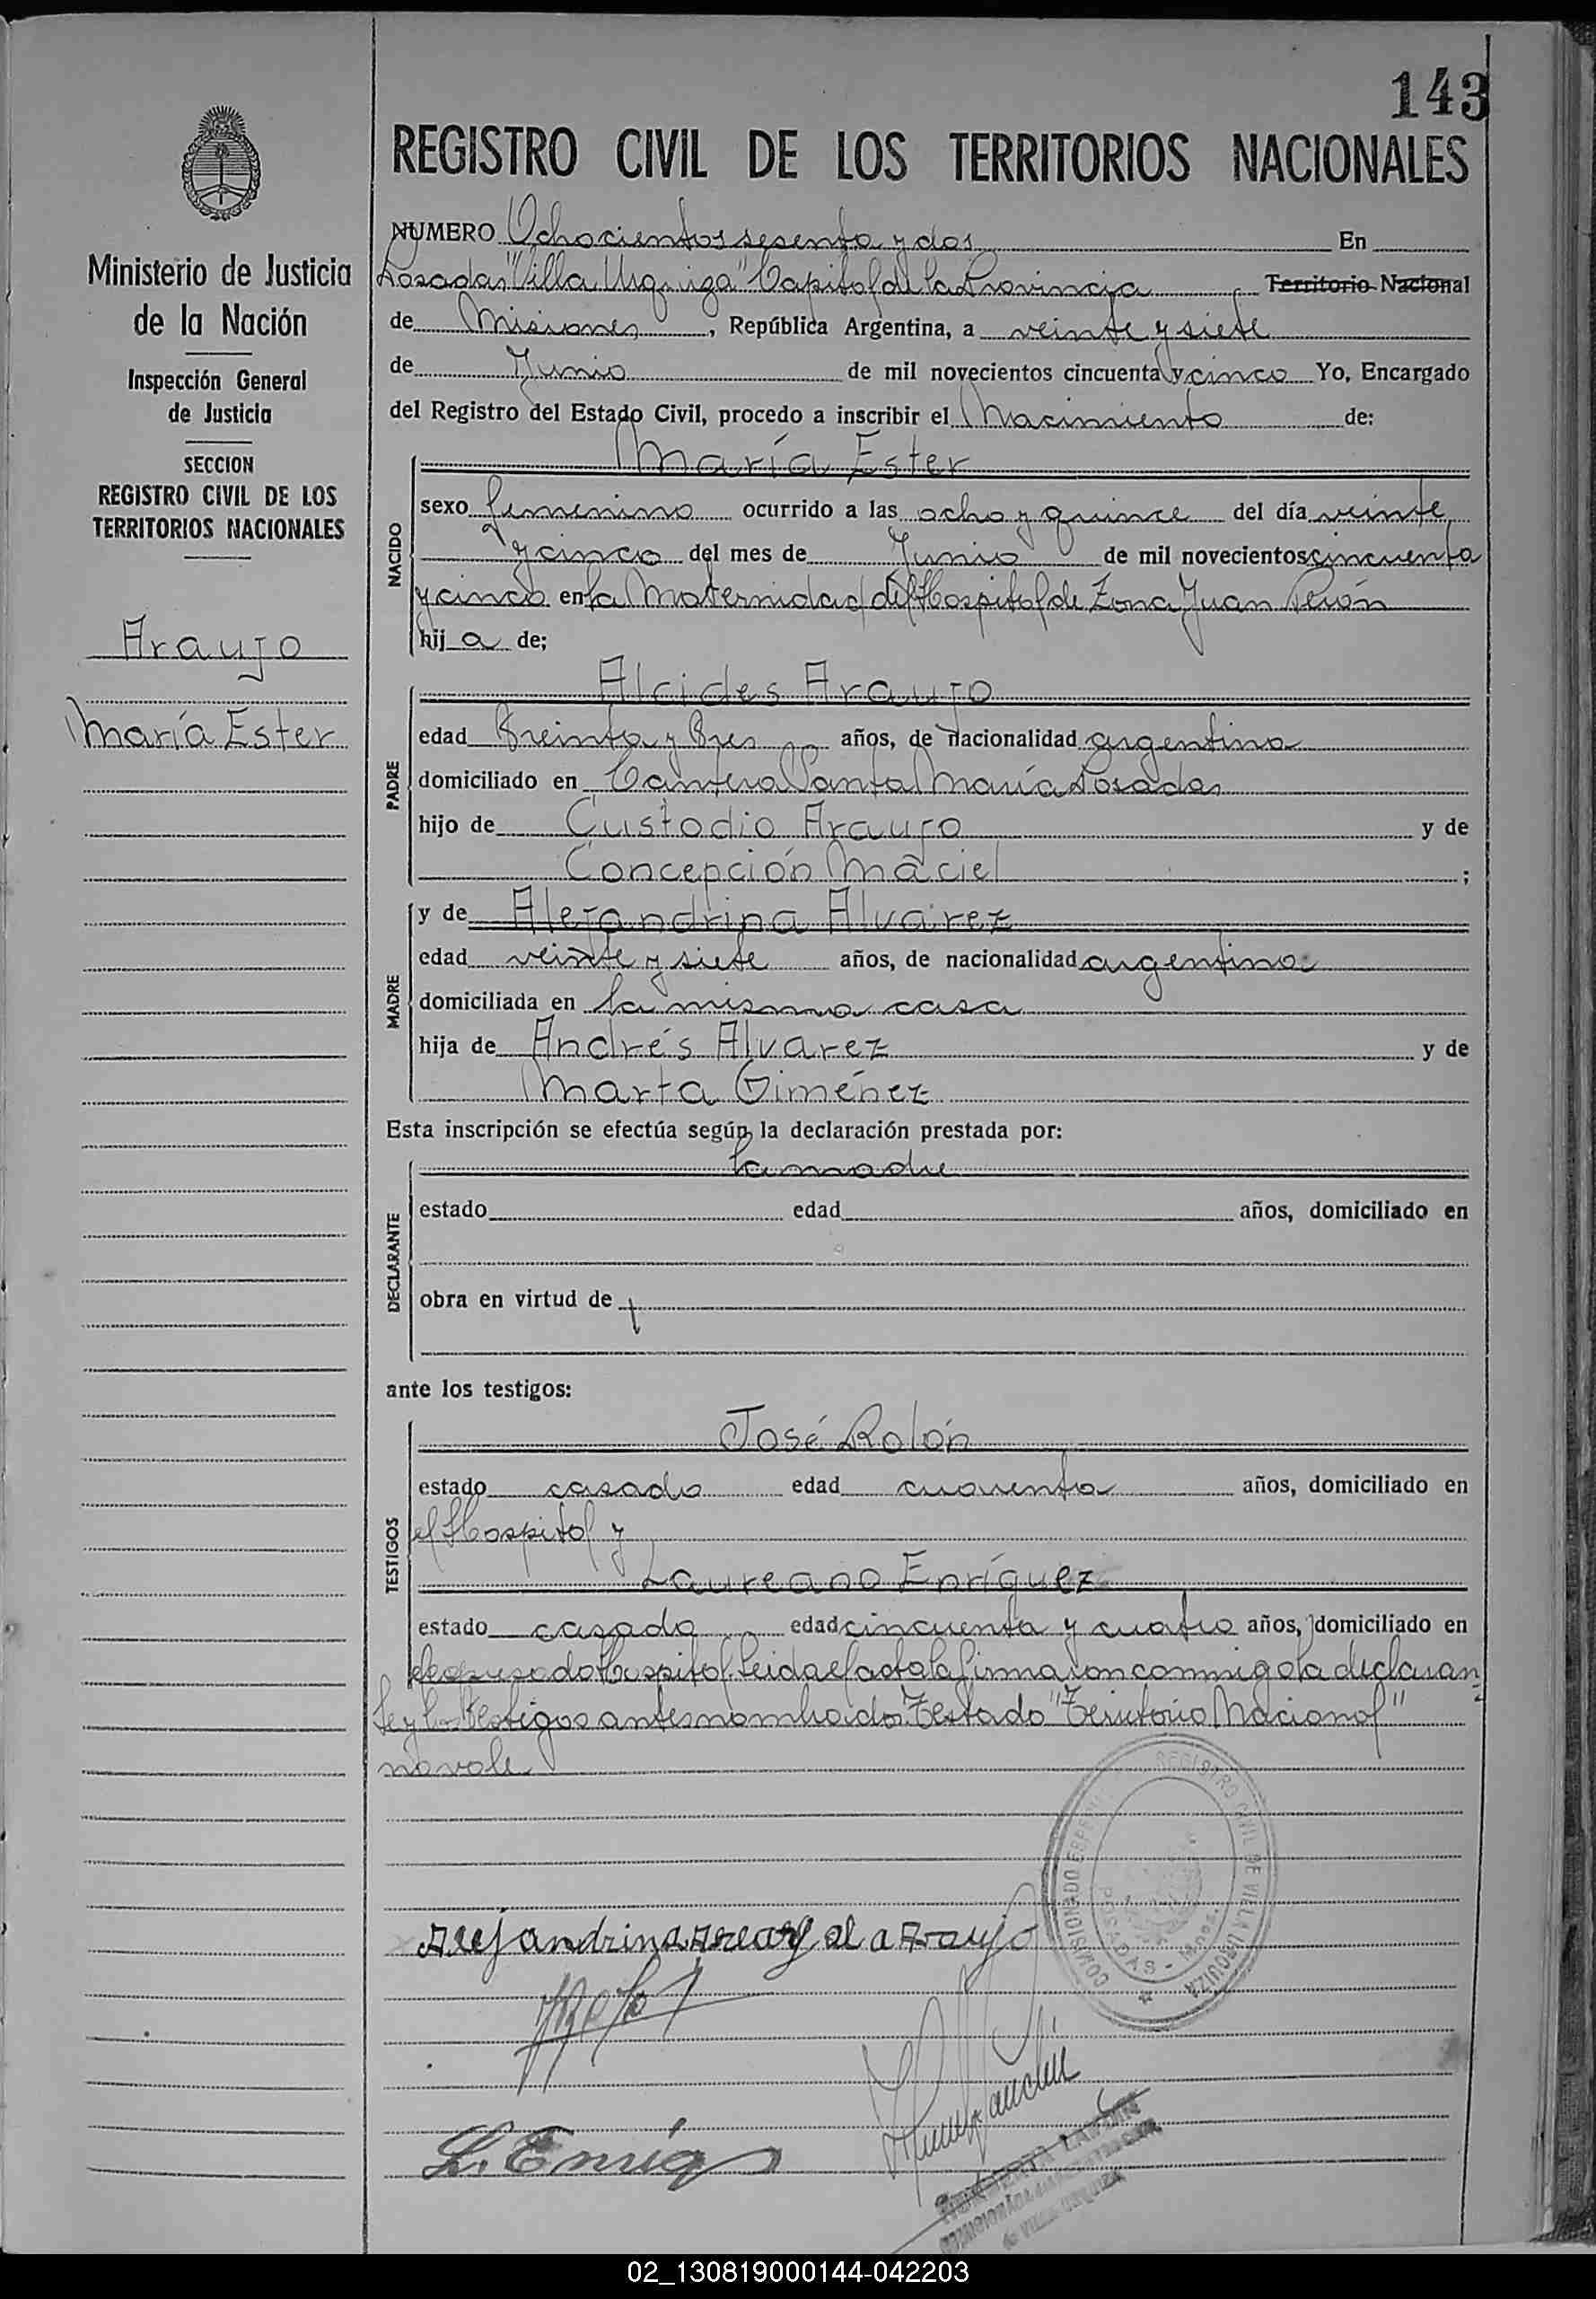 143
REGISTRO CIVIL DE LOS TERRITORIOS NACIONALES
Ministerio de Justicia
de la Nación
Inspección General
de Justicia
SECCION
REGISTRO CIVIL DE LOS
TERRITORIOS NACIONALES
Araujo
María Ester
NUMERO Ochocientos sesenta y dos En
Posadas "Villa Urquiza" Capital de la Provincia Territorio Nacional
de Misiones, República Argentina, a veinte y siete
de Junio de mil novecientos cincuenta y cinco Yo, Encargado
del Registro del Estado Civil, procedo a inscribir el Nacimiento de:
NACIDO
María Ester
sexo femenino ocurrido a las ocho y quince del día veinte
y cinco del mes de Junio de mil novecientos cincuenta
y cinco en la Maternidad del Hospital de Zona Juan Perón
hij a de;
PADRE
Alcides Araujo
edad Treinta y Tres años, de nacionalidad argentina
domiciliado en Cantera Santa María Posadas
hijo de Custodio Araujo y de
Concepción Maciel ;
MADRE
y de Alejandrina Alvarez
edad veinte y siete años, de nacionalidad argentina
domiciliada en la misma casa
hija de Andrés Alvarez y de
Marta Giménez
Esta inscripción se efectúa según la declaración prestada por:
DECLARANTE
la madre
estado edad años, domiciliado en
obra en virtud de
ante los testigos:
TESTIGOS
José Rolón
estado casado edad cuarenta años, domiciliado en
el Hospital y
Laureano Enríquez
estado casado edad cincuenta y cuatro años, domiciliado en
el expresado Hospital. Leida el acta la firmaron conmigo la declaran
te y los testigos antes nombrados. Testado "Territorio Nacional"
no vale
REGISTRO CIVIL DE VILLA URQUIZA
COMISIONADO
POSADAS - Mnes.
Alejandrina de Araujo
L. Enriq
02_130819000144-042203